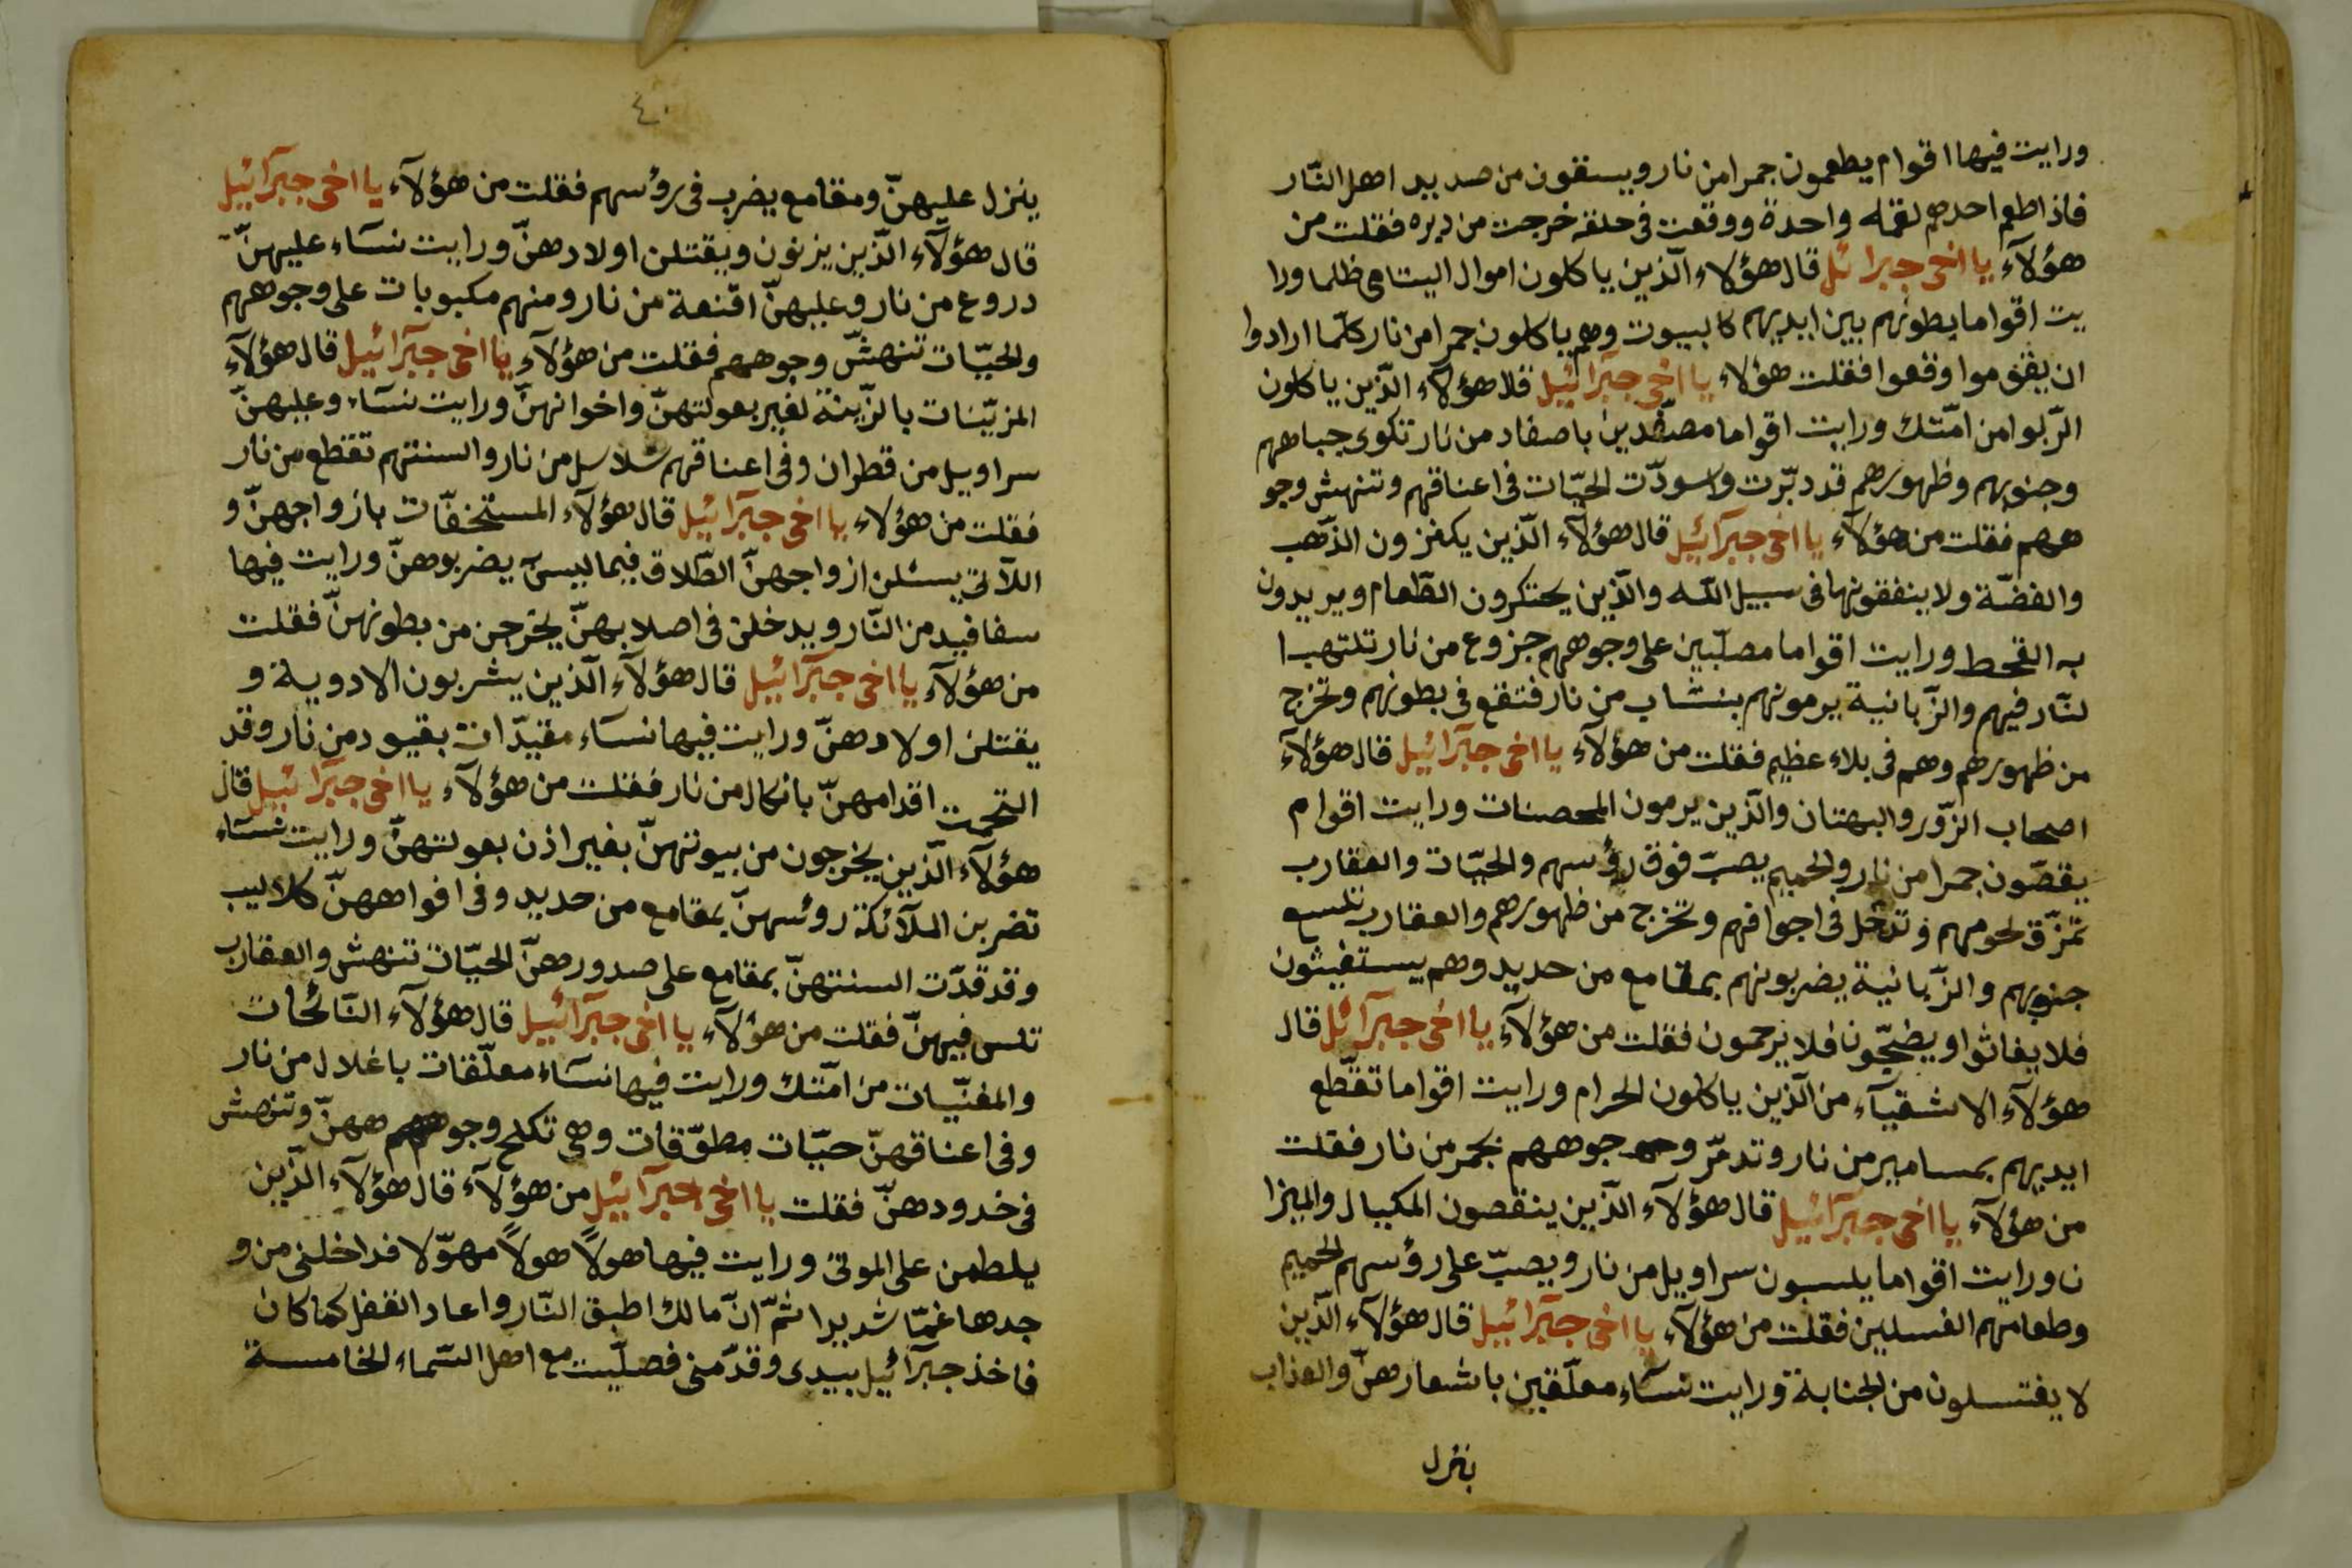 ورايت فيها اقوام يطعمون جمرا من نار ويسقون من صديد اهل النّار
فاذا طعم احدهم لقمه واحدة ووقعت فى حلقه خرجت من دبره فقلت من
هؤلآء يا اخى جبرائل قال هؤلاء الّذين ياكلون اموال اليتامى ظلما ورا
يت اقواما بطونهم بين ايديهم كالبيوت وهم ياكلون جمرا من نار كلّما ارادوا
ان يقوموا وقعوا فقلت هؤلاء يا اخى جبرآئيل قلا هؤلآء الّذين ياكلون
الرّبوا من امّتك ورايت اقواما مصفّدين باصفاد من نار تكوى جباههم
وجنوبهم وظهورهم قد دبّرت واسودّت الحيّات فى اعناقهم وتنهش وجو
ههم فقلت من هؤلآء يا اخى جبرآئيل قال هؤلآء الّذين يكنزون الذّهب
والفضّة ولا ينفقونها فى سبيل الله والّذين يحتكرون الطّعام ويريدون
به القحط ورايت اقواما مصلّبين على وجوههم جزوع من نار تلتهب ا
لنّار فيهم والزّبانية يرمونهم بنشاب من نار فتقع فى بطونهم وتخرج
من ظهورهم وهم فى بلاء عظيم فقلت من هؤلآء يا اخى جبرآئيل قال هؤلآء
اصحاب الزّور والبهتان والّذين يرمون المحصنات ورايت اقوام
يقصّون جمرا من نار والحميم يصبّ فوق رؤسهم والحيّات والعقارب
تمزّق لحومهم وتدخل فى اجوافهم وتخرج من ظهورهم والعقارب تلسع
جنوبهم والزّبانية يضربونهم بمقامع من حديد وهم يستغيثون
فلا يغاثوا ويضجّون فلا يرحمون فقلت من هؤلآء يا اخى جبرآئل قال
هؤلآء الاشقيآء من الّذين ياكلون الحرام ورايت اقواما تقطّع
ايديهم بمسامير من نار وتدمّر وجوههم بجمر من نار فقلت
من هؤلآء يا اخى جبرآئيل قال هؤلآء الّذين ينقصون المكيال والميزا
ن ورايت اقواما يلبسون سراويل من نار ويصبّ على رؤسهم الحميم
وطعامهم الغسلين فقلت من هؤلآء يا اخى جبرآئيل قال هؤلآء الّذين
لا يغتسلون من الجنابة ورايت نسآء معلّقين باشعارهنّ والعذاب
ينزل
٤٠
ينزل عليهنّ ومقامع يضرب فى رؤسهم فقلت من هؤلآء يا اخى جبرآئيل
قال هؤلآء الّذين يزنون ويقتلن اولادهنّ ورايت نسآء عليهنّ
دروع من نار وعليهنّ اقنعة من نار ومنهم مكبوبات على وجوههم
والحيّات تنهش وجوههم فقلت من هؤلآء يا اخى جبرآئيل قال هؤلآء
المزيّنات بالزّينة لغير بعولتهنّ واخوانهنّ ورايت نسآء وعليهنّ
سراويل من قطران وفى اعناقهم سلاسل من نار والسنتهم تقطع من نار
فقلت من هؤلاء يا اخى جبرآئيل قال هؤلآء المستخفّات بازواجهنّ و
اللآتى يسئلن ازواجهنّ الطّلاق فيما ليس يضربوهنّ ورايت فيها
سفافيد من النّار ويدخلن فى اصلابهنّ يخرجن من بطونهنّ فقلت
من هؤلآء يا اخى جبرآئيل قال هؤلآء الّذين يشربون الادوية و
يقتلن اولادهنّ ورايت فيها نسآء مقيّدات بقيود من نار وقد
التحمت اقدامهنّ بانكال من نار فقلت من هؤلآء يا اخى جبرآئيل قال
هؤلآء الّذين يخرجون من بيوتهنّ بغير اذن بعولتهنّ ورايت نسآء
تضربن الملآئكة روئسهنّ بمقامع من حديد وفى افواههنّ كلاليب
وقد قدّت السنتهنّ بمقامع على صدورهنّ الحيّات تنهش والعقارب
تلس فيهنّ فقلت من هؤلآء يا اخى جبرآئيل قال هؤلآء النّائحات
والمغنّيات من امّتك ورايت فيها نسآء معلّقات باغلال من نار
وفى اعناقهنّ حيّات مطوّقات وهى تكلح وجوههنّ وتنهش
فى خدودهنّ فقلت يا اخى جبرآئيل من هؤلآء قال هؤلآء الّذين
يلطمن على الموتى ورايت فيها هولاً هولاً مهوّلا فداخلنى من و
جدها غمّا شديدا ثمّ انّ مالك اطبق النّار واعاد القفل كما كان
فاخذ جبرآئيل بيدى وقدّمنى فصلّيت مع اهل السّماء الخامسة